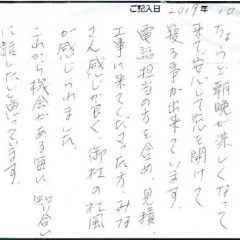 ご記入日 2019年 10
ちょうど朝晩が涼しくなって
来て、安心して窓を開けて
寝る事が出来ています。
電話担当の方を含め、見積、
工事に来てくださった方、みな
さん感じが良く、御社の社風
が感じられました。
これから機会がある毎に、知り合い
に話したいと思っています。